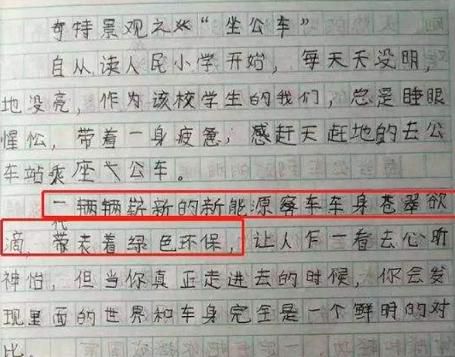 奇特景观之“坐公车”
自从读人民小学开始，每天天没明，
地没亮，作为该校学生的我们，总是睡眼
惺忪，带着一身疲惫，感赶天赶地的去公
车站乘座公车。
一辆辆崭新的新能源客车车身苍翠欲
滴，代表着绿色环保，让人乍一看去心旷
神怡，但当你真正走进去的时候，你会发
现里面的世界和车身完全是一个鲜明的对
比